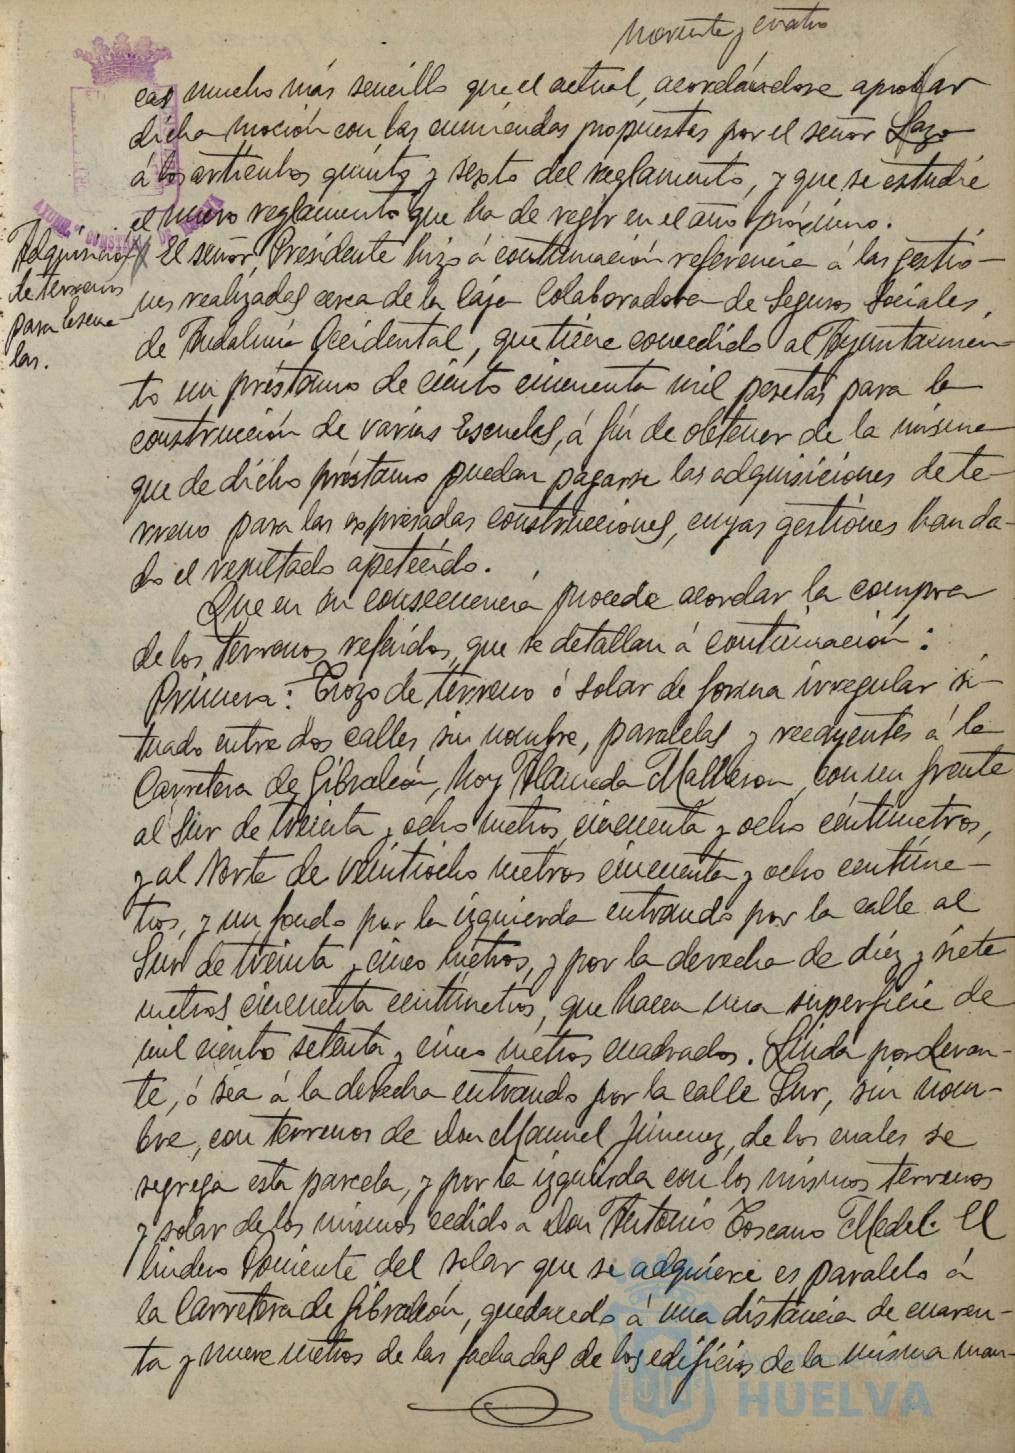 noventa y cuatro
cas mucho más sencillo que el actual, acordándose aprobar
dicha moción con las enmiendas propuestas por el señor Lazo
á los artículos quinto y sexto del reglamento, y que se estudie
el nuevo reglamento que ha de regir en el año próximo.
Adquisición
de terrenos
para Escue-
las.
El señor Presidente hizo á continuación referencia á las gestio-
nes realizadas cerca de la Caja Colaboradora de Seguros Sociales,
de Andalucía Occidental, que tiene concedido al Ayuntamien-
to un préstamo de ciento cincuenta mil pesetas para la
construcción de varias Escuelas, á fin de obtener de la misma
que de dicho préstamo puedan pagarse las adquisiciones de te-
rreno para las expresadas construcciones, cuyas gestiones han da-
do el resultado apetecido.
Que en su consecuencia procede acordar la compra
de los terrenos referidos, que se detallan á continuación:
Primera: Trozo de terreno ó solar de forma irregular si-
tuado entre dos calles sin nombre, paralelas y recayentes á la
Carretera de Gibraleón, hoy Alameda Matheson, con un frente
al Sur de treinta y ocho metros, cincuenta y ocho centímetros,
y al Norte de veintiocho metros cincuenta y ocho centíme-
tros, y un fondo por la izquierda entrando por la calle al
Sur de treinta y cinco metros, y por la derecha de diez y siete
metros cincuenta centímetros, que hacen una superficie de
mil ciento setenta y cinco metros cuadrados. Linda por delan-
te, ó sea á la derecha entrando por la calle Sur, sin nom-
bre, con terrenos de Don Manuel Jimenez, de los cuales se
segrega esta parcela, y por la izquierda con los mismos terrenos
y solar de los mismos cedido a Don Antonio Toscano Medel. El
lindero Poniente del solar que se adquiere es paralelo á
la Carretera de Gibraleón, quedando á una distancia de cuaren-
ta y nueve metros de las fachadas de los edificios de la misma man-
HUELVA